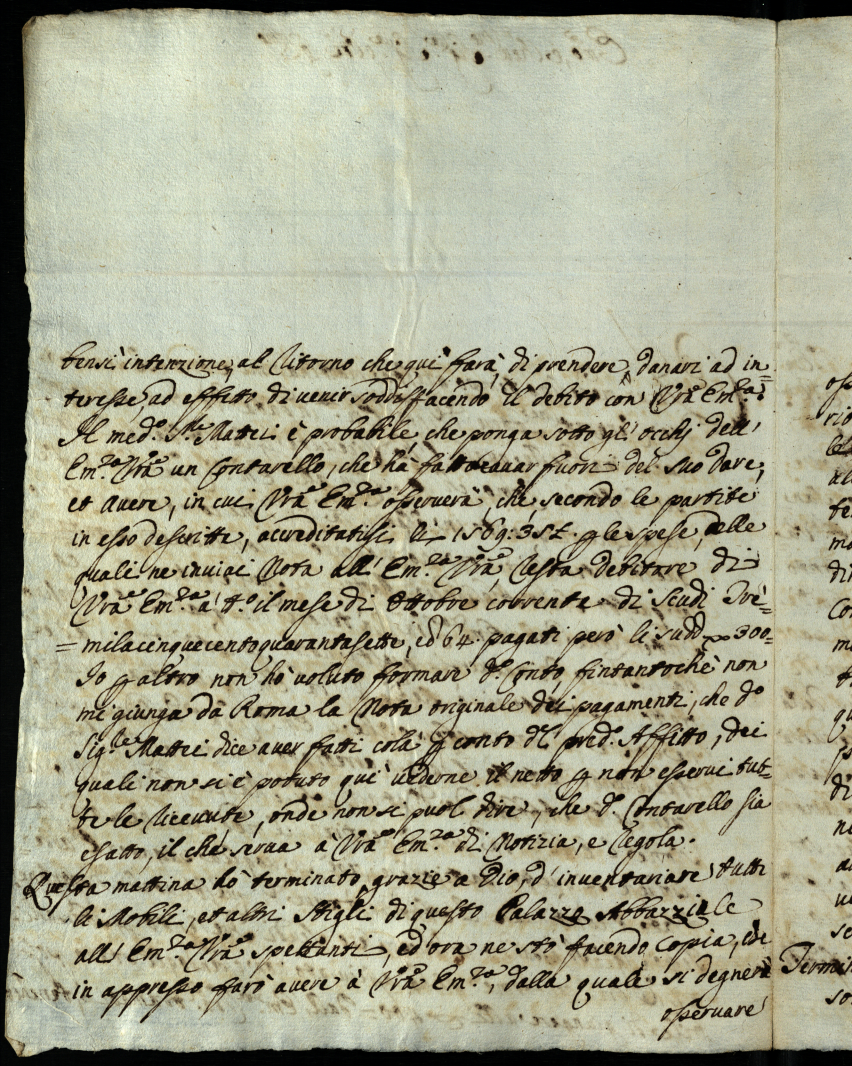 bensì intenzione, al ritorno che quì farà, di prendere danari ad in=
teresse ad effetto di venir soddisfacendo il debito con Vrã Em.za;
Il med.º S.re Mattei è probabile, che ponga sotto gl'occhj dell'
Em.za Vrã un Contarello, che hà fatto cavar fuori del suo dare,
et avere, in cui Vrã Em.za osserverà, che secondo le partite
in esso descritte, accreditatisi li 1569:35 p le spese, delle
quali ne inviai Nota all'Em.za Vrã, resta debitore di
Vrã Em.za à t.º il mese di Ottobre corrente di Scudi Tré=
=milacinquecentoquarantasette, e 64. pagati però li sudd. 300=
Io p altro non hò voluto formare d.º Conto fintantochè non
mi giunga da Roma la Nota originale dei pagamenti, che d.º
Sig.re Mattei dice aver fatti colà p conto del pred.º Affitto, dei
quali non si è potuto quì vederne il netto p non esservi tut=
te le ricevute, onde non si puol dire, che d.º Contarello sia
esatto, il che serva à Vrã Em.za di Notizia, e regola.
Questa mattina hò terminato, grazie a Dio, d'inventariare tutti
li Mobili, et altri Stigli di questo Palazzo Abbazziale
all'Em.za Vrã spettanti, ed ora ne stò facendo copia, che
in appresso farò avere à Vrã Em.za, dalla quale si degnerà
osservare
riò
di
ne
Termin